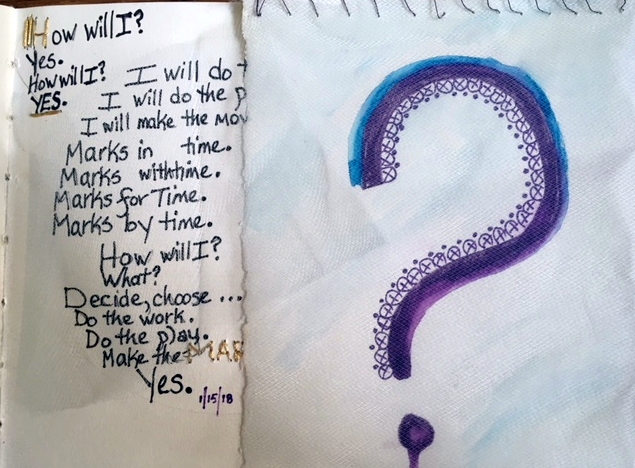 How will I?
Yes.
How will I? I will do t
YES. I will do the p
I will make the mov
Marks in time.
Marks with time.
Marks for Time.
Marks by time.
How will I?
What?
Decide, choose ...
Do the work.
Do the play.
Make the MAR
Yes. 1/15/18
?